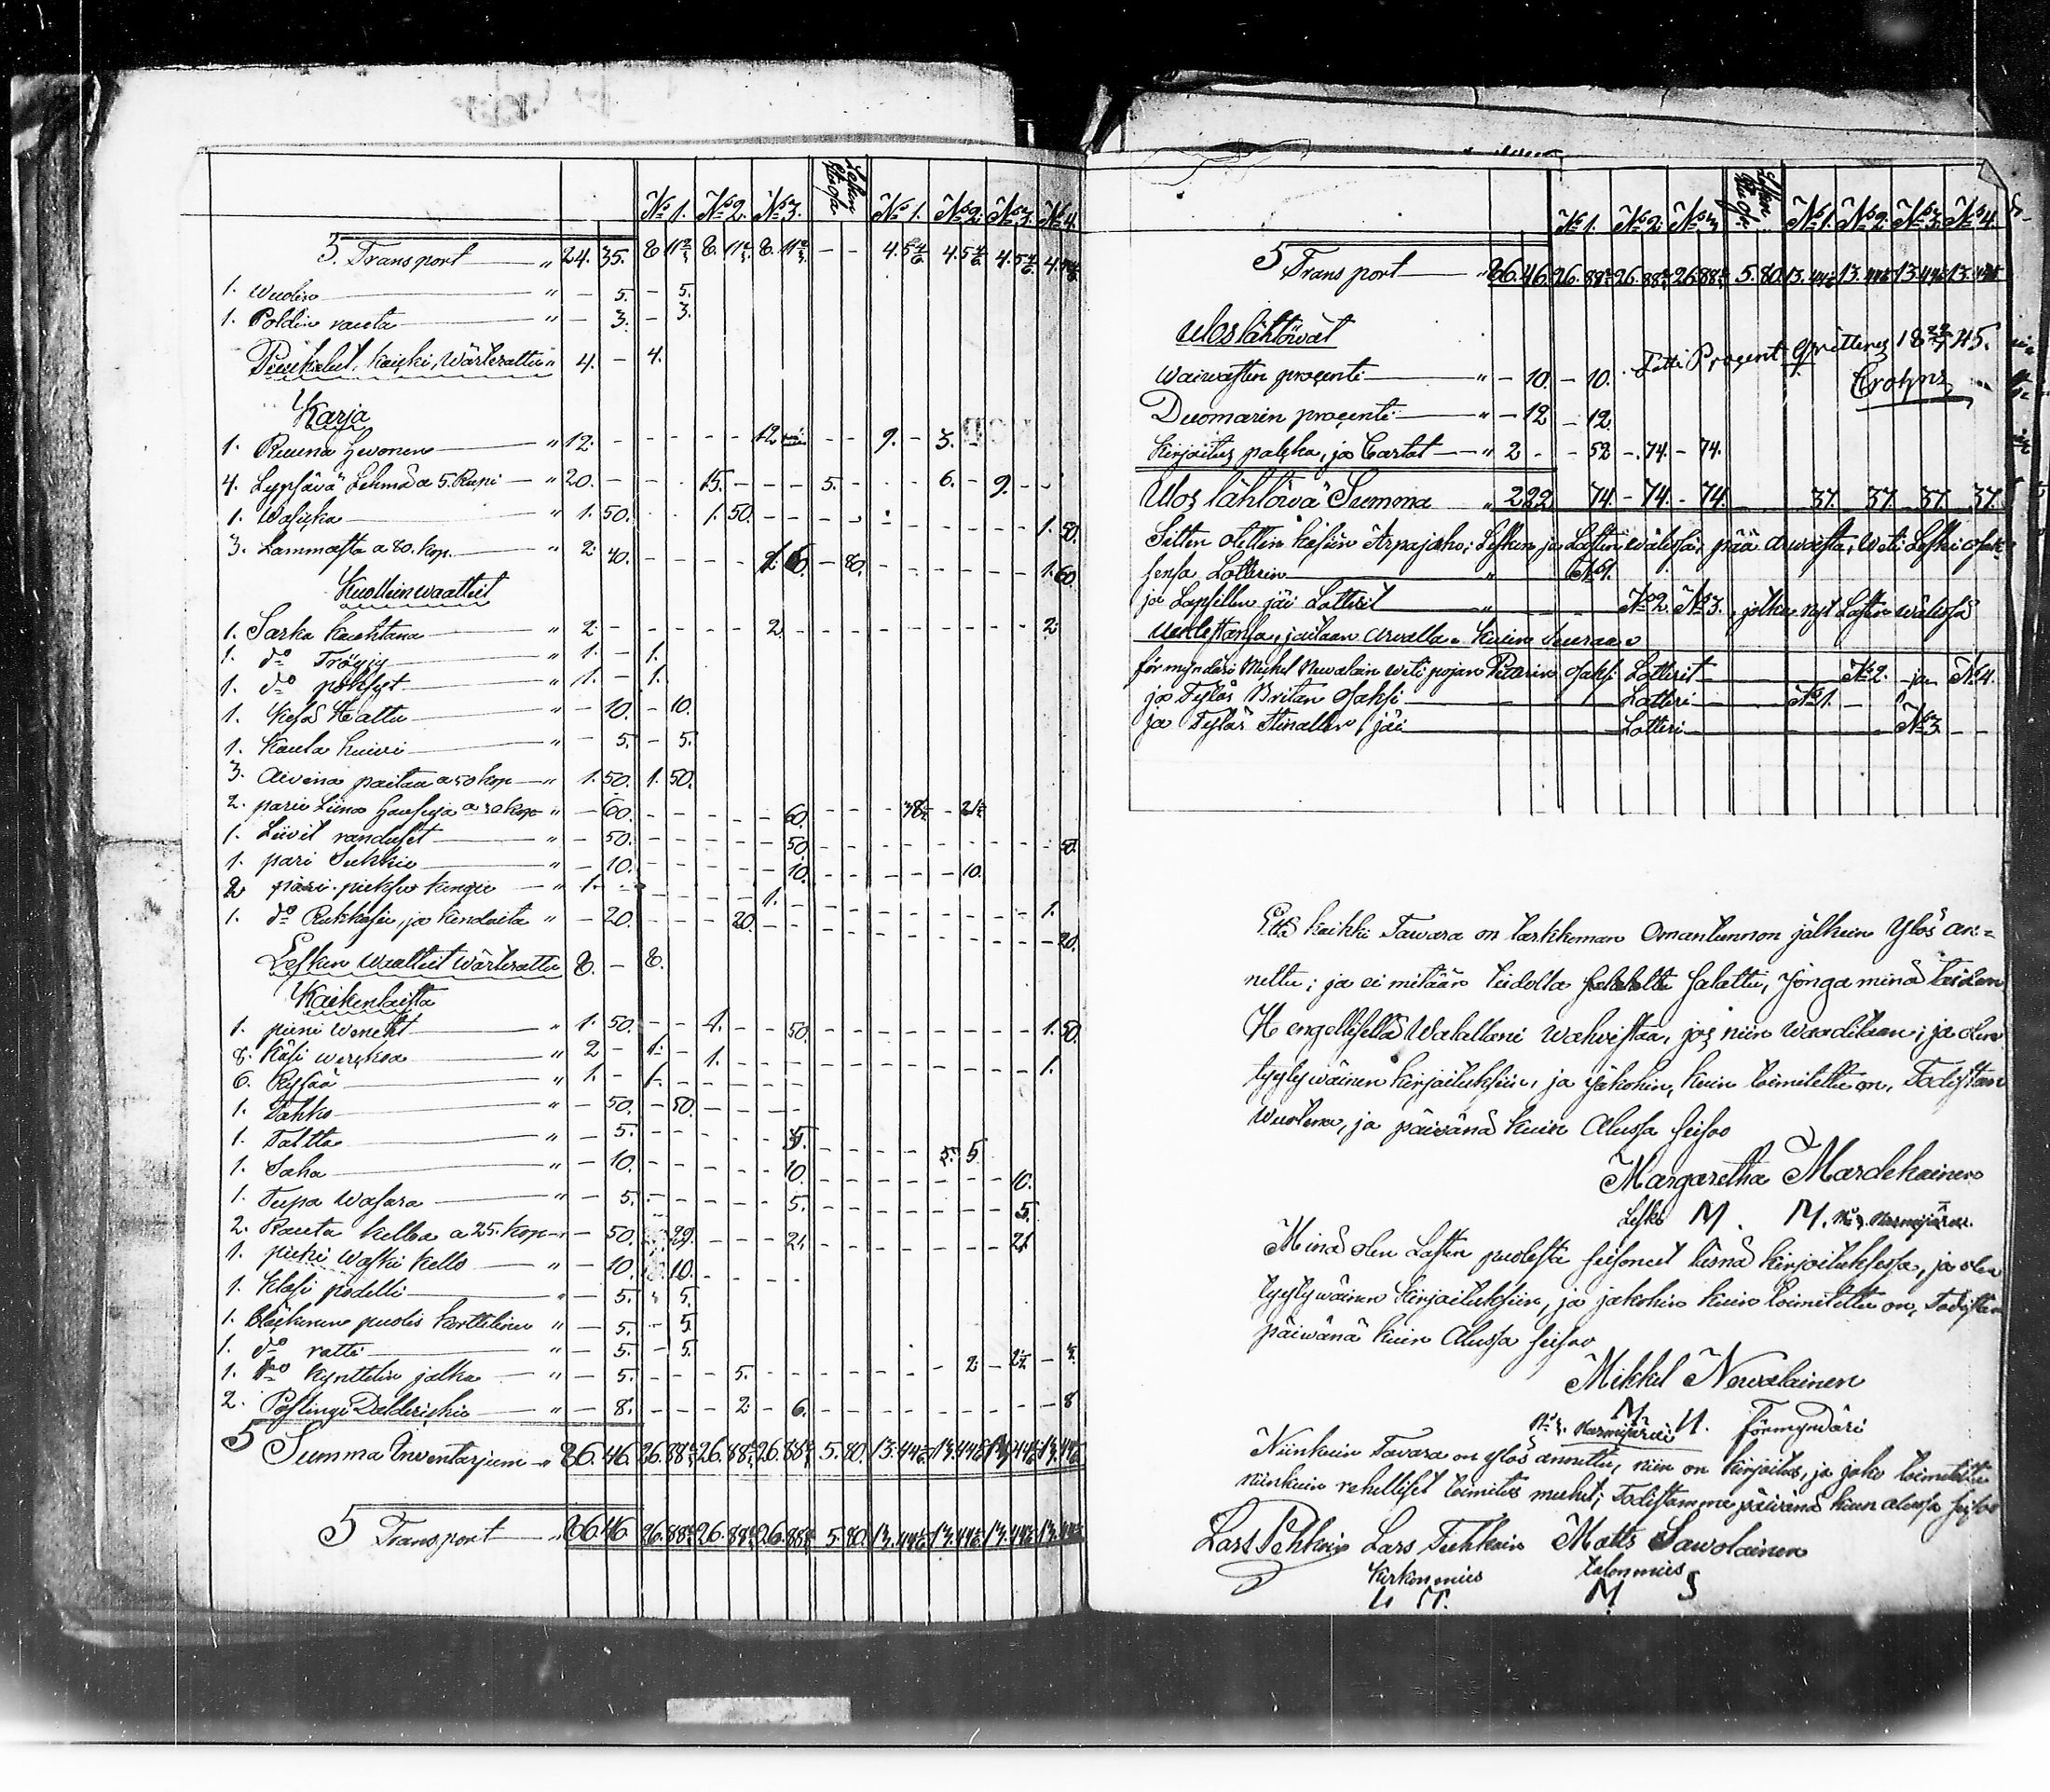 No 1. No 2. No 3. No 1. No 2. No 3. No 4.
3. Transport " 24. 35. 8 11 2/3 8. 11 2/3 8. 11 2/3 - - 4. 5 4. 5 4. 5 4. 5
1. Wuolin " - 5. - 5.
1. Poldin rauta " - 3. - 3.
Puukalut, kaicki, Wärterattu " 4. - 4.
Karja
1. Ruuna Hevonen " 12. - - - - - 12. - - 9. - 3.
4. Lypsävä Lehmä a 5. Rupi " 20. - - - 15. - - - 5. - - 6. - 9. - -
1. Wasicka " 1. 50. - - 1. 50. - - - - 1. 50.
3. Lammasta a 80. kop. " 2. 40. - - - - 60. - 80. - - - - - - 1. 60.
Kuolleinwaatteet
1. Sarka kauhtana " 2. - - - - - 2 - - - - - - - - 2.
1. do Tröyjy " 1. - 1.
1. do pöksyt " 1. - 1.
1. Kesä Hattu " - 10. - 10.
1. Kaula huiwi " - 5. - 5.
3. Aivina paitaa a 50 kop " 1. 50. 1. 50.
2. paria Liina housuja a 30 kop " - 60. - - - - - 60. - - -
1. Liivit randuset " - 50. - - - - - 50. - - - - - - - 50.
1. pari Sukkia " - 10. - - - - - 10. - - - - - 10.
2 pari pieksu kengie " 1. - - - - - 1. - - - - - - - 1.
1. do Rukkasia, ja kindaita " - 20. - - - 20. - - - - - - - - - 20.
Lesken waatteet wärterattu 8. - 8.
Kaikenlaista
1. pieni weneht " 1. 50. - - 1. - - 50. - - - - - - - 1. 50
8. käsi werckoa " 2 - 1. - 1. - - - - - - - - - 1.
6. Rysää " 1. - 1. - - - - -
1. Tahko " - 50. - 50. - - - -
1. Taltta " - 5. - - - - - 5. - - - - 5
1. Saha " - 10. - - - - - 10. - - - - - - 10.
1. Tupa wasara " - 5. - - - - - 5. - - - - - - 5.
2. Rauta kelloa a 25. kop " - 50. 29. - - - 21. - - - - - - 21.
1. pieni waski kello " - 10. 10. - - - -
1. klasi podelli " - 5. 5.
1. Bläckinen puolis korttelinen " - 5. - 5.
1. do ratti " - 5. - 5.
1. do kynttilin jalka " - 5. - - - 5. - 2 -
2. Poslingi Dalderickia " - 8. - - - 2. - 6. - - - - - - - 8
5 Summa Inventarjumi " 86. 46. 26. 88 26. 88 26. 88 5. 80. 13. 44 13. 44 13. 44 13. 44
5 Transport " 86 46 26. 88 26. 88 26. 88 5. 80. 13. 44 13. 44 13. 44 13. 44
No 1. No 2. No 3 No 1. No 2. No 3. No 4.
5 Transport " 86. 46. 26. 88 26. 88 26 88 5. 80. 13. 44 13. 44 13. 44 13. 44
Uloslähtöwät
Procent qvitteras 45.
Waiwasten procenti " - 10. - 10.
Duomarin procenti " - 12 - 12.
Kirjoitus palcka, ja Cartat " 2 - - 52 - 74. - 74.
Ulos lähtöwä Summa " 2 22 74. - 74. - 74. 37. 37. 37. 37.
Sitten otettin käsiin Arpajako; Lesken ja Lasten wälissä, pää arwasta, weti Leski osak=
sensa Lotterin " No 1.
ja Lapsillen jäi Lotterit " No 2. No 3. , jotka nyt Lasten wälissä
uudestansa, jaetaan arwalla. kuin seuraa
förmyndäri Mickel Newalain weti pojan Petterin osaksi Lotterit No 2. ja No 4.
ja Tytär Britan osaksi Lotteri No 1. -
ja Tytär jäi Lotteri No 3. - -
Että kaikki Tawara on tarkkeman Omantunnon jälkein Ylös an=
nettu; ja ei mitään tiedolta salattu, jonga minä taidan
Hengellisellä Walallani wahwistaa, jos niin waaditaan; ja olen
tyytywäinen kirjoituksiin, ja jakohin, kuin toimitettu on, Todistan
Wuotena, ja päiwänä kuin Alussa seisoo
Margaretha Mardekainen
Leski M. M.
Minä olen Lasten puolesta seisonut läsnä kirjoituksessa, ja olen
tyytywäinen kirjoituksiin, ja jakohin kuin toimitettu on, Todistan
päiwänä kuin Alussa seisoo
Mikkel Newalainen
M. N. förmyndäri
Niinkuin Tavara on ylös annettu, niin on kirjoitus, ja jako toimitettu
niinkuin rehelliset toimitus miehet; Todistamme päiwänä kuin alussa seisoo
Lars Pehkoin Lars Tuhkoin Matts Sawolainen
Kirkonmies talonmies
L T. M S